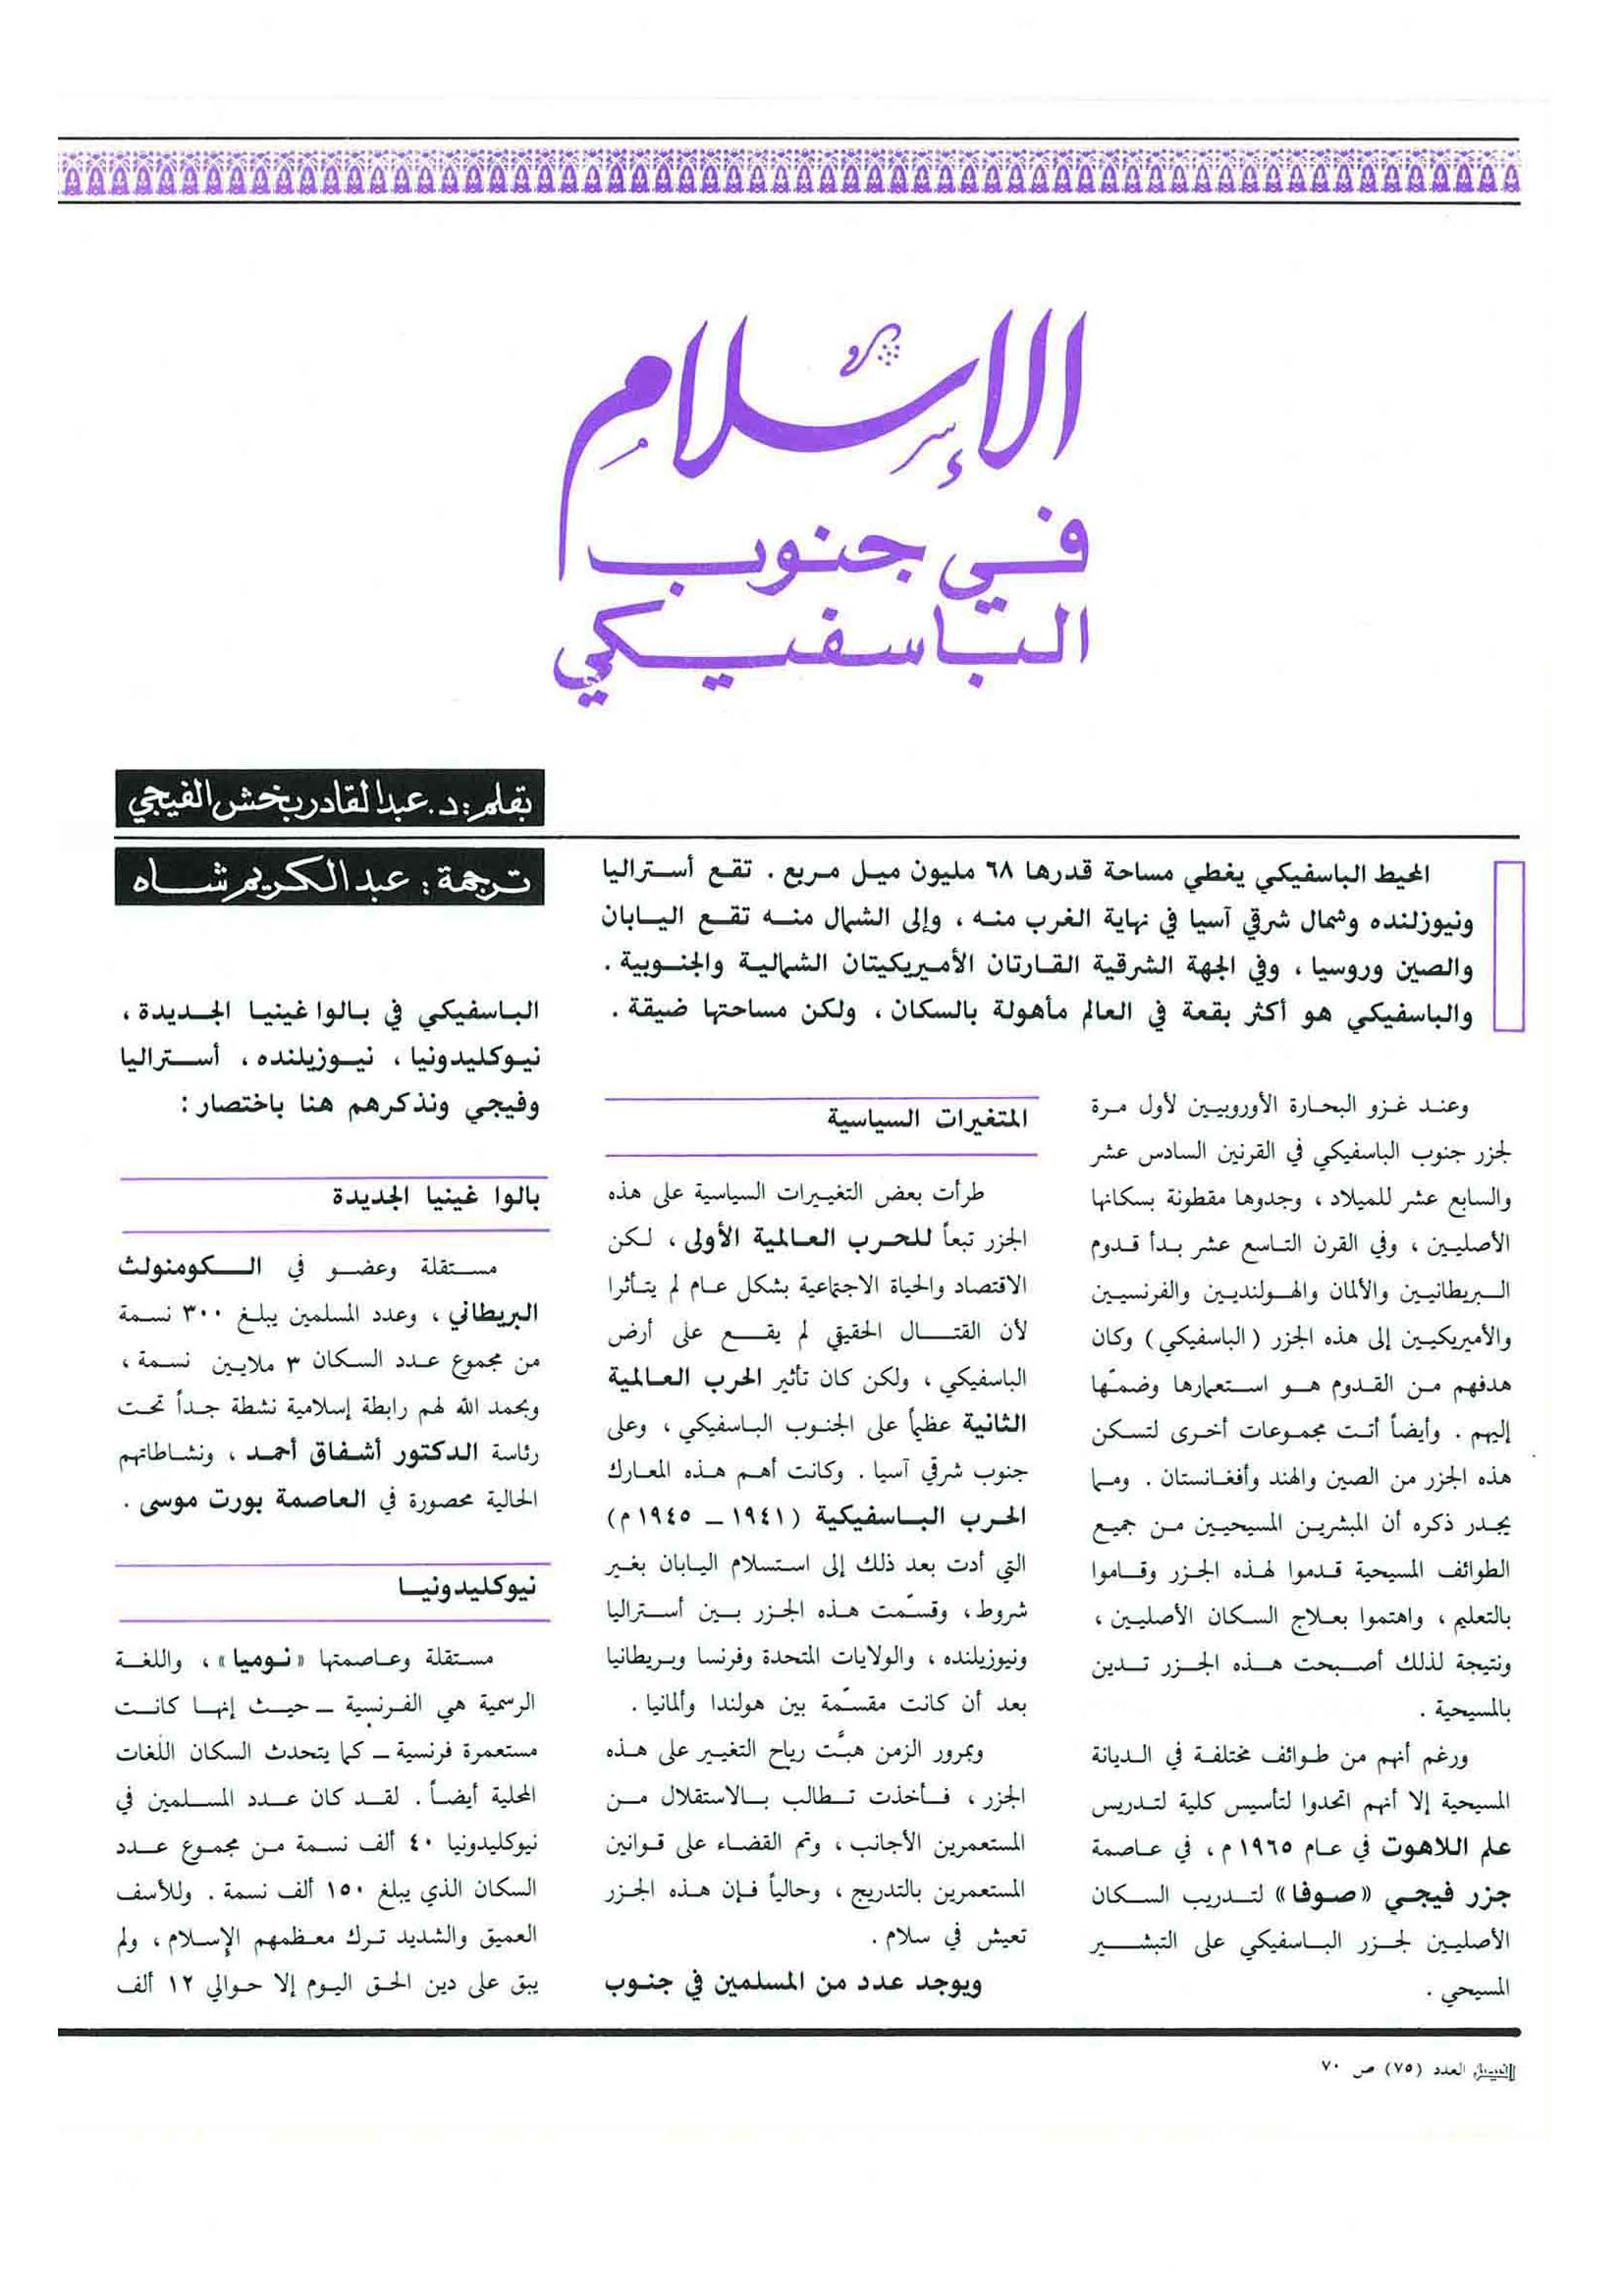 الإسلام
في جنوب
الباسفيكي
بقلم: د. عبدالقادر بخش الفيجي
ترجمة: عبدالكريم شاه
المحيط الباسفيكي يغطي مساحة قدرها ٦٨ مليون ميل مربع . تقع أستراليا
ونيوزلنده وشمال شرقي آسيا في نهاية الغرب منه ، وإلى الشمال منه تقع اليابان
والصين وروسيا ، وفي الجهة الشرقية القارتان الأميريكيتان الشمالية والجنوبية .
والباسفيكي هو أكثر بقعة في العالم مأهولة بالسكان ، ولكن مساحتها ضيقة .
وعند غزو البحارة الأوروبيين لأول مرة
لجزر جنوب الباسفيكي في القرنين السادس عشر
والسابع عشر للميلاد ، وجدوها مقطونة بسكانها
الأصليين ، وفي القرن التاسع عشر بدأ قدوم
البريطانيين والألمان والهولنديين والفرنسيين
والأميريكيين إلى هذه الجزر (الباسفيكي) وكان
هدفهم من القدوم هو استعمارها وضمّها
إليهم . وأيضاً أتت مجموعات أخرى لتسكن
هذه الجزر من الصين والهند وأفغانستان . ومما
يجدر ذكره أن المبشرين المسيحيين من جميع
الطوائف المسيحية قدموا لهذه الجزر وقاموا
بالتعليم ، واهتموا بعلاج السكان الأصليين ،
ونتيجة لذلك أصبحت هذه الجزر تدين
بالمسيحية .
ورغم أنهم من طوائف مختلفة في الديانة
المسيحية إلا أنهم اتحدوا لتأسيس كلية لتدريس
علم اللاهوت في عام ١٩٦٥ م ، في عاصمة
جزر فيجي «صوفا» لتدريب السكان
الأصليين لجزر الباسفيكي على التبشير
المسيحي .
المتغيرات السياسية
طرأت بعض التغييرات السياسية على هذه
الجزر تبعاً للحرب العالمية الأولى ، لكن
الاقتصاد والحياة الاجتماعية بشكل عام لم يتأثرا
لأن القتال الحقيقي لم يقع على أرض
الباسفيكي ، ولكن كان تأثير الحرب العالمية
الثانية عظيماً على الجنوب الباسفيكي ، وعلى
جنوب شرقي آسيا . وكانت أهم هذه المعارك
الحرب الباسفيكية (١٩٤١ – ١٩٤٥ م)
التي أدت بعد ذلك إلى استسلام اليابان بغير
شروط ، وقسّمت هذه الجزر بين أستراليا
ونيوزيلنده ، والولايات المتحدة وفرنسا وبريطانيا
بعد أن كانت مقسّمة بين هولندا وألمانيا .
وبمرور الزمن هبَّت رياح التغيير على هذه
الجزر ، فأخذت تطالب بالاستقلال من
المستعمرين الأجانب ، وتم القضاء على قوانين
المستعمرين بالتدريج ، وحالياً فإن هذه الجزر
تعيش في سلام .
ويوجد عدد من المسلمين في جنوب
الباسفيكي في بالوا غينيا الجديدة ،
نيوكليدونيا ، نيوزيلنده ، أستراليا
وفيجي ونذكرهم هنا باختصار :
بالوا غينيا الجديدة
مستقلة وعضو في الكومنولث
البريطاني ، وعدد المسلمين يبلغ ٣٠٠ نسمة
من مجموع عدد السكان ٣ ملايين نسمة ،
وبحمد الله لهم رابطة إسلامية نشطة جداً تحت
رئاسة الدكتور أشفاق أحمد ، ونشاطاتهم
الحالية محصورة في العاصمة بورت موسى .
نيوكليدونيا
مستقلة وعاصمتها «نوميا» ، واللغة
الرسمية هي الفرنسية – حيث إنها كانت
مستعمرة فرنسية – كما يتحدث السكان اللغات
المحلية أيضاً . لقد كان عدد المسلمين في
نيوكليدونيا ٤٠ ألف نسمة من مجموع عدد
السكان الذي يبلغ ١٥٠ ألف نسمة . وللأسف
العميق والشديد ترك معظمهم الإسلام ، ولم
يبق على دين الحق اليوم إلا حوالي ١٢ ألف
الفيصل العدد (٧٥) ص ٧٠